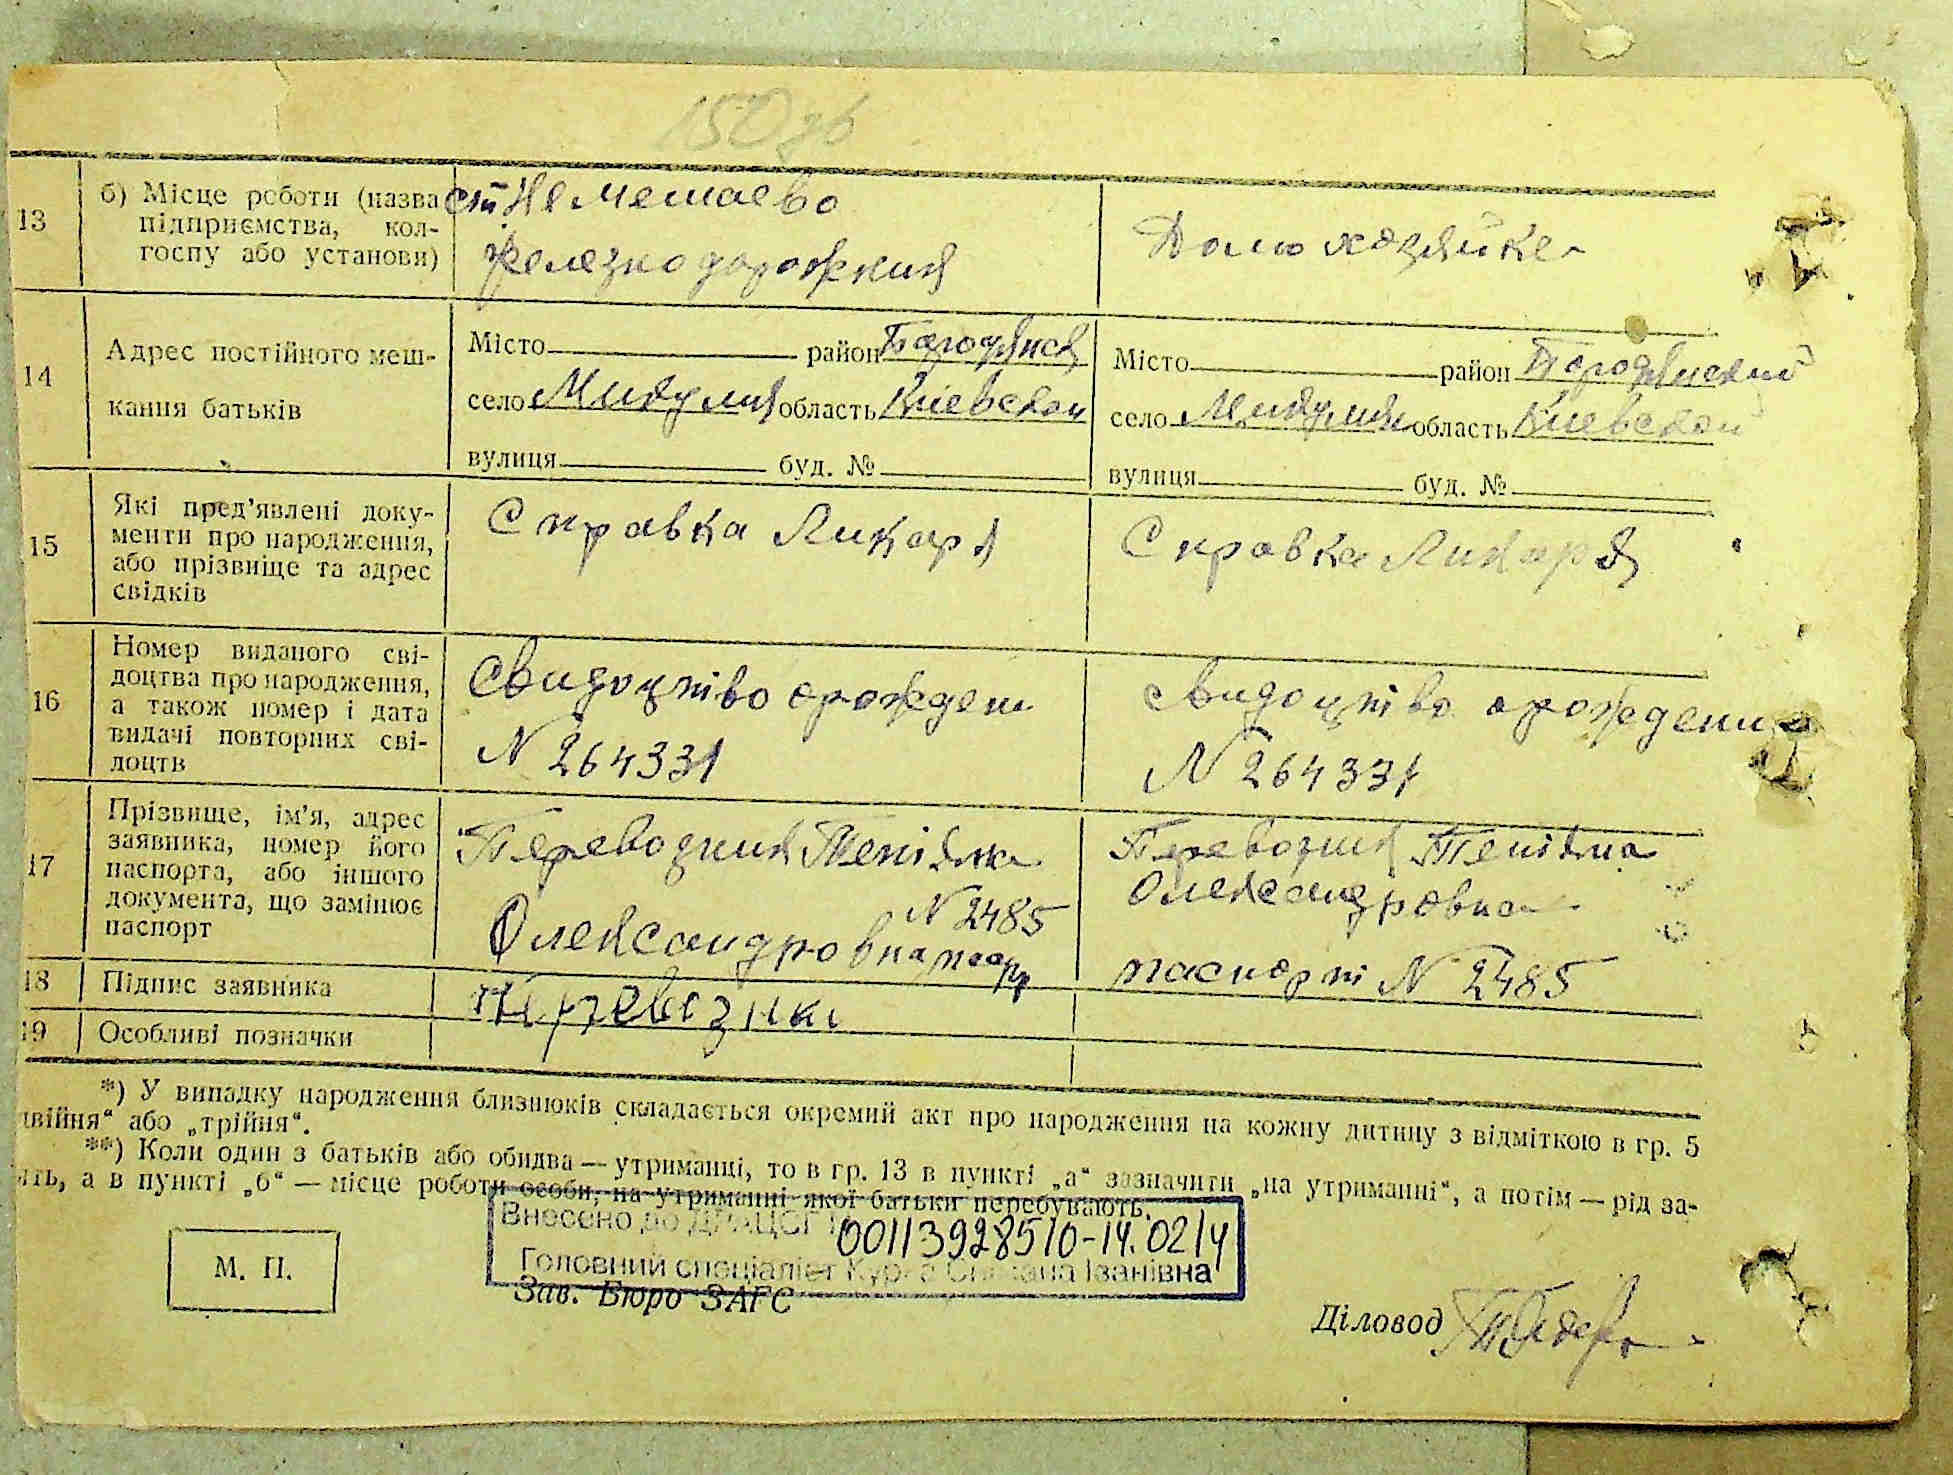 150 зв
13
б) Місце роботи (назва
підприємства, кол-
госпу або установи)
ст Немешаево
железнодорожния
Домохозяйка
14
Адрес постійного меш-
кання батьків
Місто район Бородянск
село Микулия область Киевской
вулиця буд. №
Місто район Бородянский
село Микулия область Киевской
вулиця буд. №
15
Які пред'явлені доку-
менти про народження,
або прізвище та адрес
свідків
Справка Ликаря
Справка Ликаря
16
Номер виданого сві-
доцтва про народження,
а також номер і дата
видачі повторних сві-
доцтв
Свидоцтво орожден
N 264331
свидоцтво орождени
N 264331
17
Прізвище, ім'я, адрес
заявника, номер його
паспорта, або іншого
документа, що замінює
паспорт
Олександровна
N 2485
Олександровна
паспорт N 2485
18
Підпис заявника
19
Особливі позначки
*) У випадку народження близнюків складається окремий акт про народження на кожну дитину з відміткою в гр. 5
двійня“ або „трійня“.
**) Коли один з батьків або обидва — утриманці, то в гр. 13 в пункті „а“ зазначити „на утриманні“, а потім — рід за-
ять, а в пункті „б“ — місце роботи особи, на утриманні якої батьки перебувають.
Внесено до ДРАЦСГ
00113928510-14.02.14
Головний спеціаліст Іванівна
М. П.
Зав. Бюро ЗАГС
Діловод